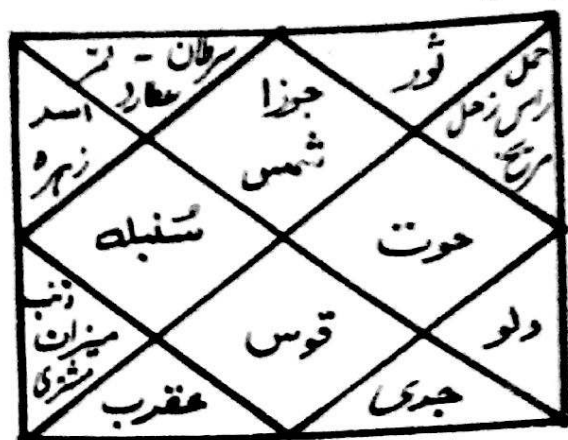 سرطان - قمر
عطارد
جوزا
شمس
ثور
حمل
راس زحل
مریخ
اسد
زہرہ
سنبلہ
حوت
ذنب
میزان
مشتری
قوس
دلو
عقرب
جدی